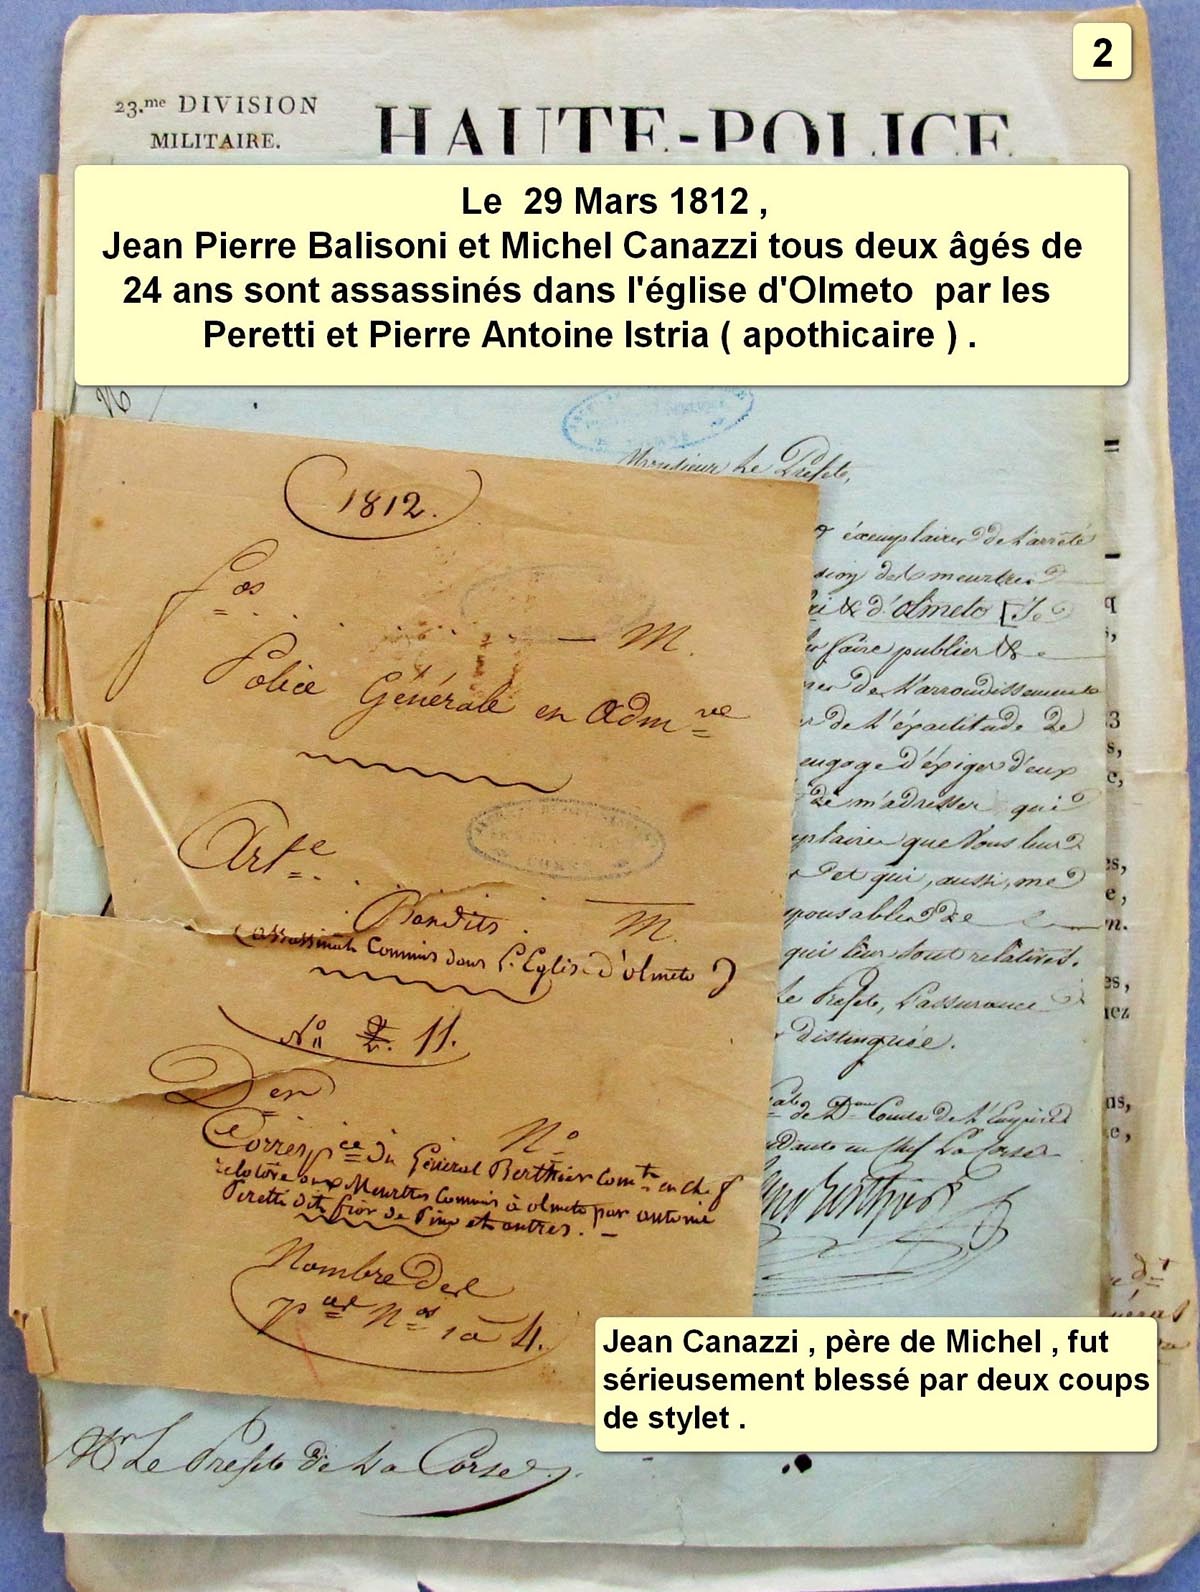 2
23.me DIVISION
MILITAIRE.
HAUTE-POLICE
Le 29 Mars 1812 ,
Jean Pierre Balisoni et Michel Canazzi tous deux âgés de
24 ans sont assassinés dans l'église d'Olmeto par les
Peretti et Pierre Antoine Istria ( apothicaire ) .
Monsieur Le Préfet,
exemplaires de l'arrêté
des meurtres
& d'olmeto Je
faire publier &
de l'arrondissement
de l'éxactitude de
engage d'éxiger d'eux
de m'adresser qui
que vous leur
et qui, aussi, me
de
qui leur sont relatives.
Le Préfet, l'assurance
distinguée.
Comte de l'Empire
en Chef La Corse
1812.
f os M.
Police Générale en Adm ve
Art e
Bandits. M.
(assassinat Commis dans l'Eglise d'olmeto)
N° 2. 11.
Des
Corresp ce du Général Berthier Com t en chef N°
relative aux Meurtres Commis à olmeto par antoine
Peretti dit fior de Pino et autres.
Nombre des
p ces N os 1 à 4.
Jean Canazzi , père de Michel , fut
sérieusement blessé par deux coups
de stylet .
Mr Le Préfet de La Corse.